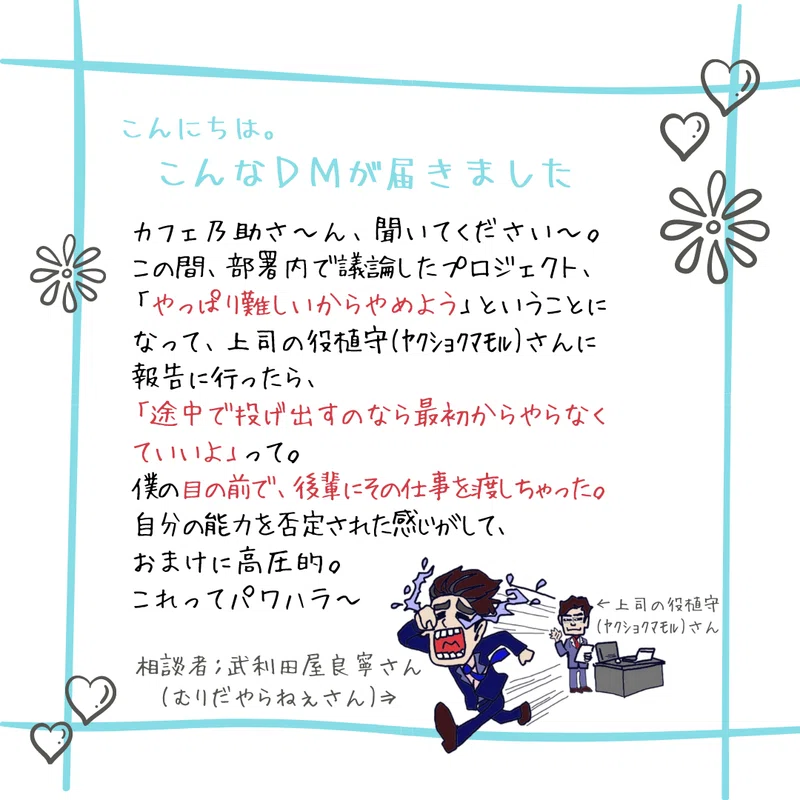 こんにちは。
こんなDMが届きました
カフェ乃助さ～ん、聞いてください～。
この間、部署内で議論したプロジェクト、
「やっぱり難しいからやめよう」ということに
なって、上司の役植守(ﾔｸｼｮｸﾏﾓﾙ)さんに
報告に行ったら、
「途中で投げ出すのなら最初からやらなく
ていいよ」って。
僕の目の前で、後輩にその仕事を渡しちゃった。
自分の能力を否定された感じがして、
おまけに高圧的。
これってパワハラ～
←上司の役植守
(ﾔｸｼｮｸﾏﾓﾙ)さん
相談者；武利田屋良寧さん
(むりだやらねぇさん)⇒